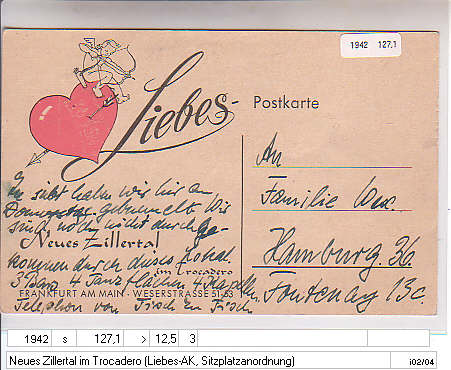 1942 127,1
Liebes-
Postkarte
An
Familie
Hamburg 36.
Fontenay 13c.
hatten wir hier am
Donnerstag gebummelt Wir
sind noch nicht durchge-
Neues Zillertal
kommen durch dieses Lokal.
im Trocadero
3 4 Tanzflächen 4 Kapellen
FRANKFURT AM MAIN - WESERSTRASSE 51-53
Telephon von Tisch zu Tisch
1942 s 127,1 > 12,5 3
Neues Zillertal im Trocadero (Liebes-AK, Sitzplatzanordnung) i02/04